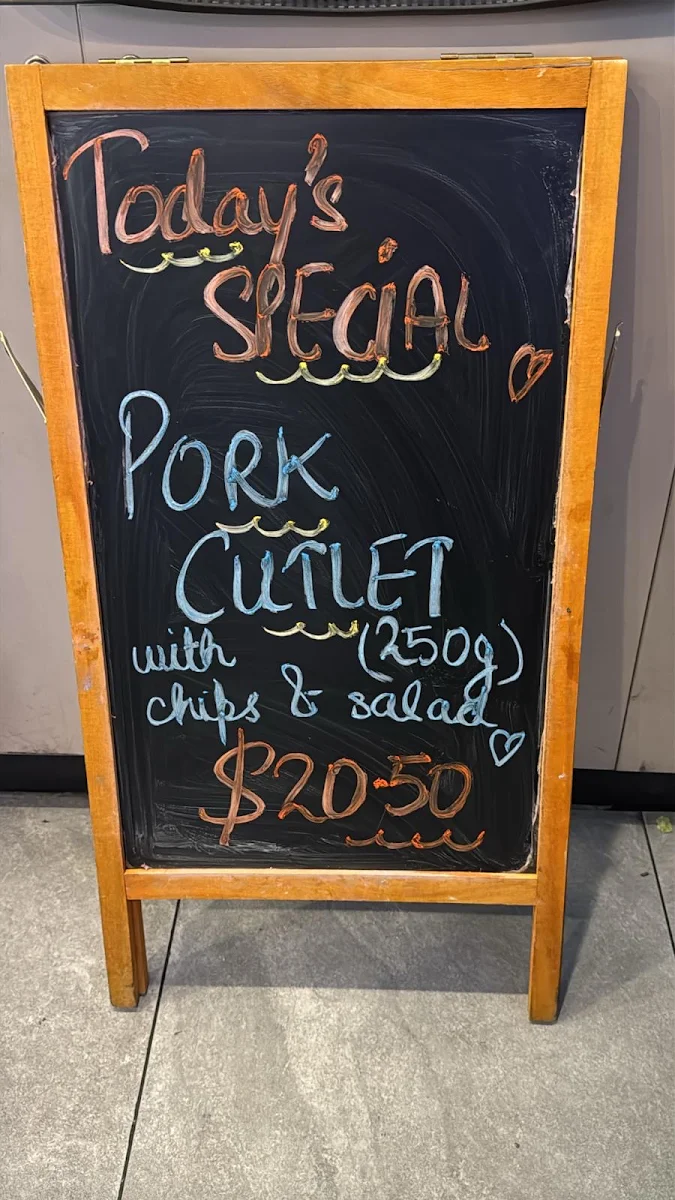 Today's
SPECiAL
PORK
CUTLET
with (250g)
chips & salad
$20.50